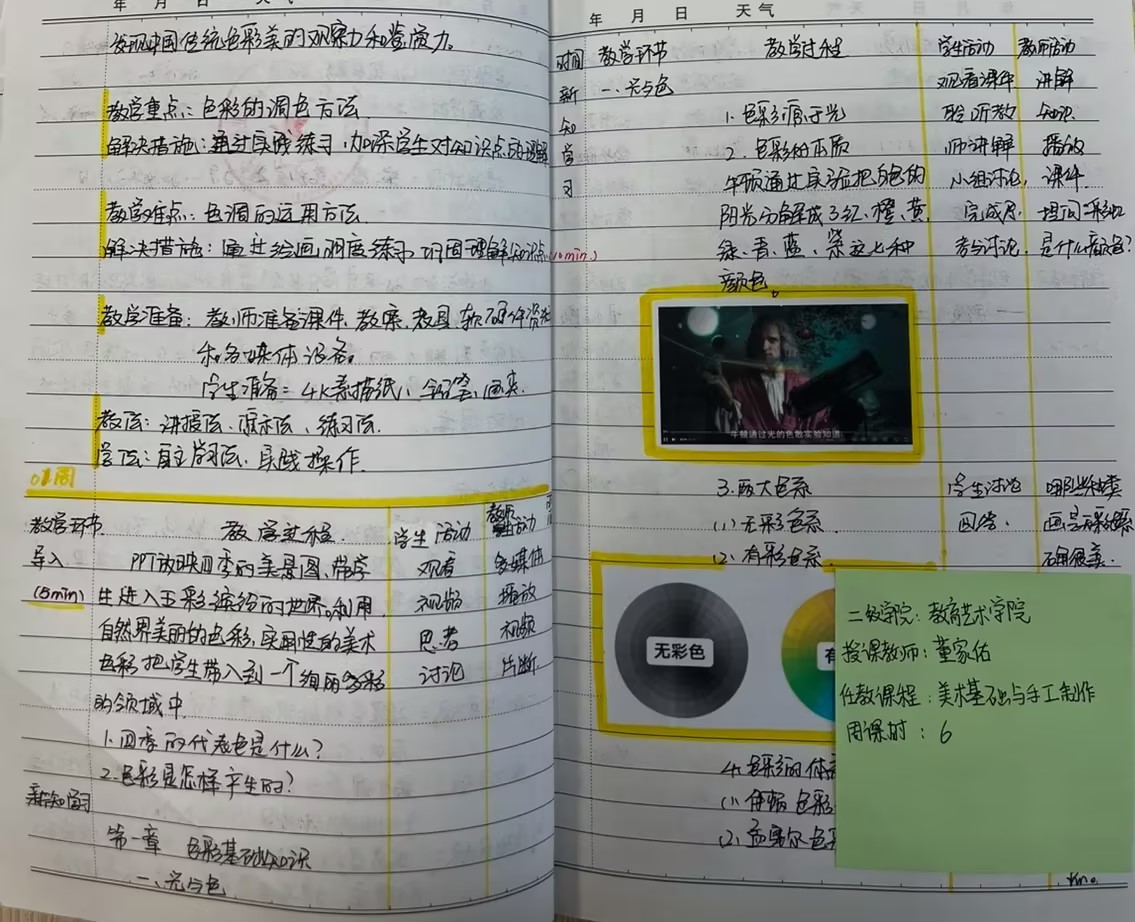 年 月 日 天气
发现中国传统色彩美的观察力和鉴赏力。
教学重点：色彩的调色方法
解决措施：通过实践练习，加深学生对知识点的理解
教学难点：色调的运用方法.
解决措施：通过绘画调度练习，巩固理解知识点
教学准备：教师准备课件、教案、教具、软硬件资源
和多媒体设备。
学生准备：4K素描纸、铅笔、画夹.
教法：讲授法、演示法、练习法.
学法：自主学习法、实践操作.
01周
教学环节 教学过程 学生活动 教师活动
导入 PPT放映四季的美景图、带学 观看 多媒体
(5min) 生进入五彩缤纷的世界。利用 视频 播放
自然界美丽的色彩,实用性的美术 思考 视频
色彩把学生带入到一个绚丽多彩 讨论 片断
的领域中.
1.四季的代表色是什么?
2.色彩是怎样产生的?
新知学习
第一章 色彩基础知识
一、光与色
年 月 日 天气
时间 教学环节 教学过程 学生活动 教师活动
新 一、光与色 观看课件 讲解
知 1.色彩源于光 聆听教 知识
学 2.色彩的本质 师讲解 播放
习 牛顿通过实验把白色的 小组讨论, 课件.
阳光分解成了红、橙、黄 完成 提问:彩虹
(10min) 绿、青、蓝、紫这七种 参与讨论. 是什么颜色?
颜色。
牛顿通过光的色散实验知道
3.两大色系 学生讨论 哪些种类
(1)无彩色系. 回答. 画是无彩色系
(2)有彩色系. 很美.
无彩色
有
4.色彩的体
(1)伊顿色彩
(2)孟塞尔色
二级学院：教育艺术学院
授课教师：董家佑
任教课程：美术基础与手工制作
周课时：6